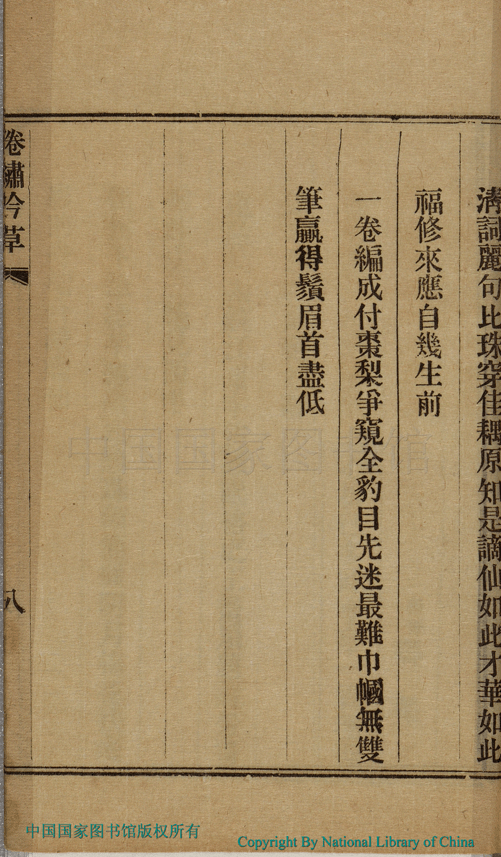 清詞麗句比珠穿佳耦原知是謫仙如此才華如此
福修來應自幾生前
一卷編成付棗梨爭窺全豹目先迷最難巾幗無雙
筆贏得鬚眉首盡低
卷繡吟草
八
中国国家图书馆
中国国家图书馆版权所有
Copyright By National Library of China